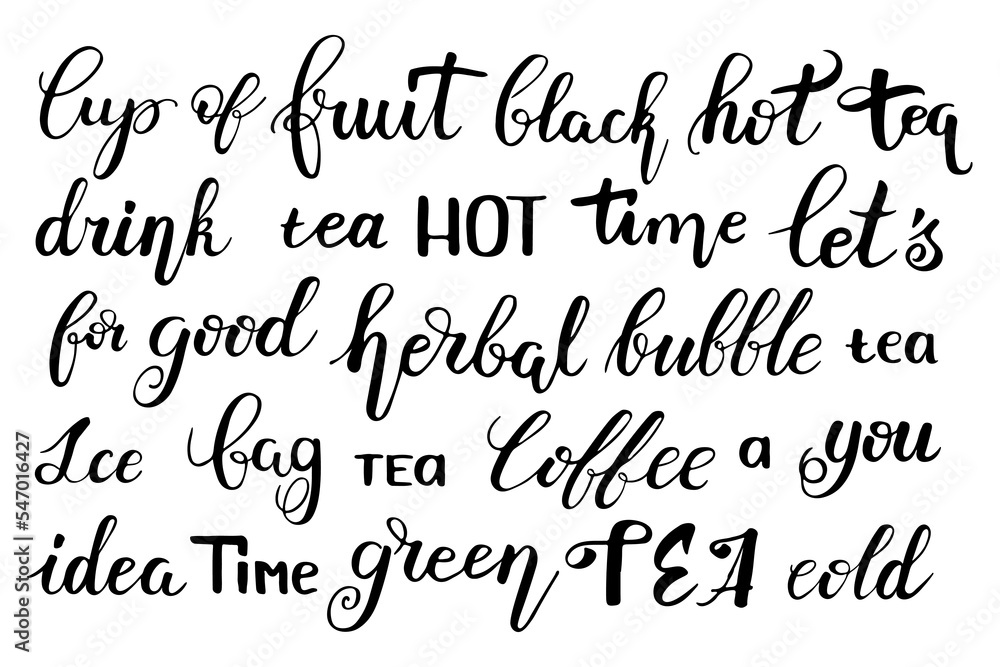 Cup of fruit black hot tea
drink tea HOT time let's
for good herbal bubble tea
Ice bag TEA Coffee a you
idea Time green TEA cold
Adobe Stock | #547016427